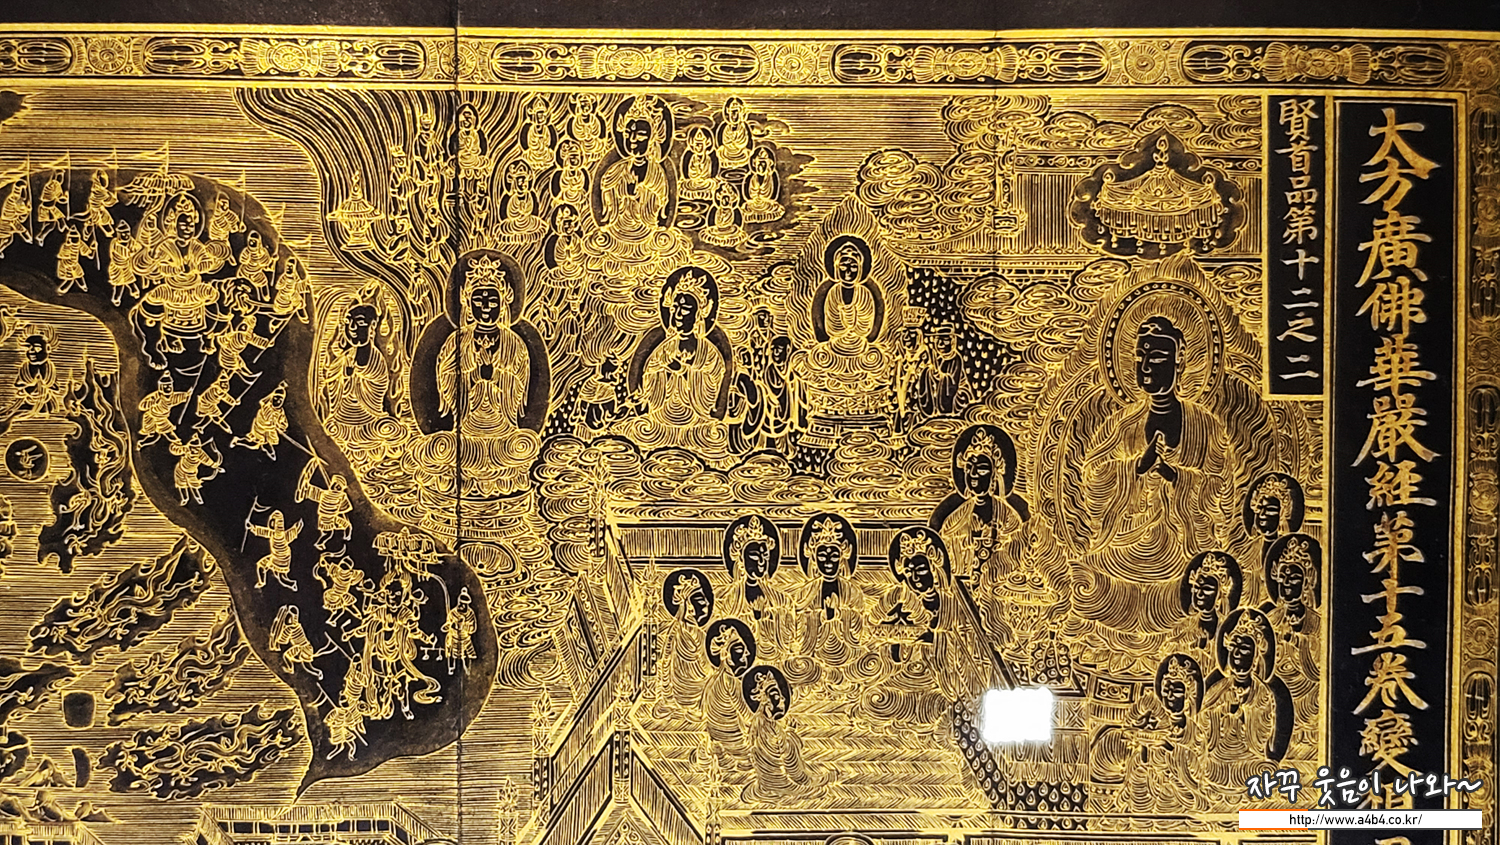 大方廣佛華嚴經第十五卷變相
賢首品第十二之二
자꾸 웃음이 나와~
http://www.a4b4.co.kr/